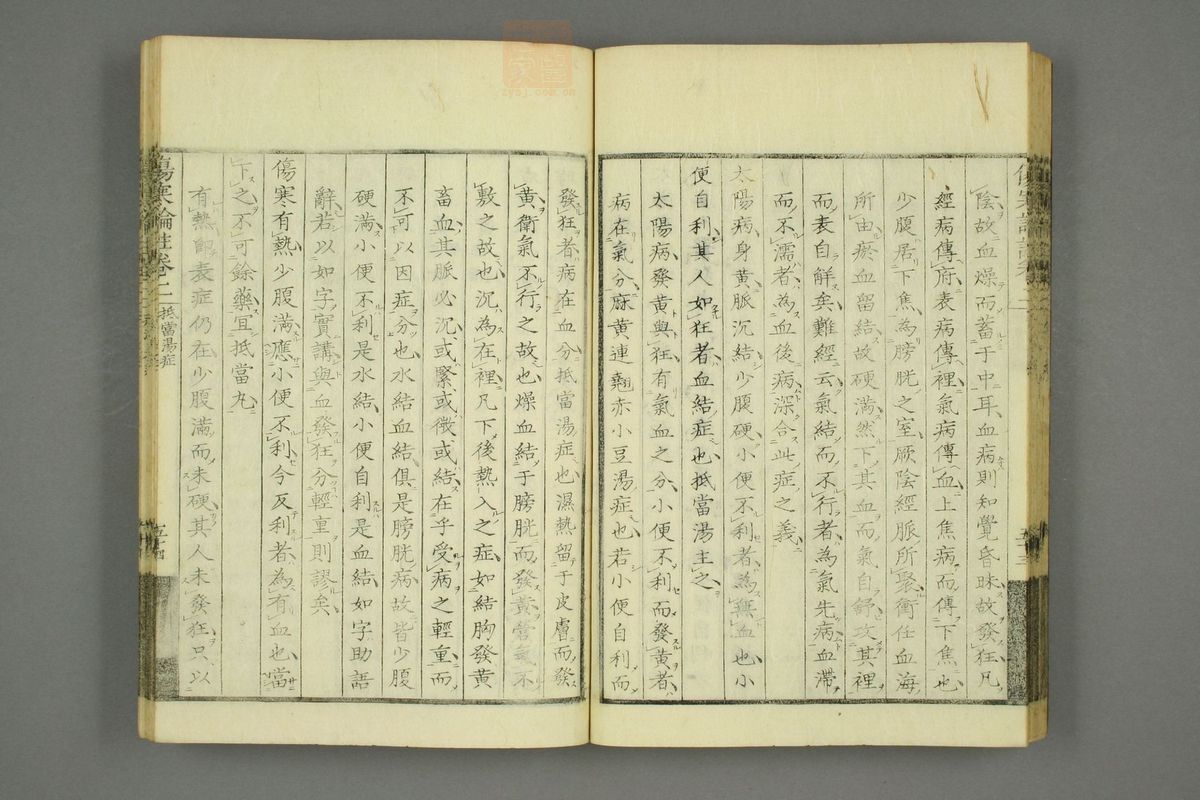 陰故血燥而蓄于中耳血病則知覺昏昧故發狂凡
經病傳府表病傳裡氣病傳血上焦病而傳下焦也
少腹居下焦為膀胱之室厥陰經脈所聚衝任血海
所由瘀血留結故硬滿然下其血而氣自舒攻其裡
而表自解矣難經云氣結而不行者為氣先病血滯
而不濡者為血後病深合此症之義
太陽病身黃脈沉結少腹硬小便不利者為無血也小
便自利其人如狂者血結症也抵當湯主之
太陽病發黃與狂有氣血之分小便不利而發黃者
病在氣分麻黃連翹赤小豆湯症也若小便自利而
發狂者病在血分抵當湯症也濕熱留于皮膚而發
黃衛氣不行之故也燥血結于膀胱而發黃營氣不
敷之故也沉為在裡凡下後熱入之症如結胸發黃
畜血其脈必沉或緊或微或結在乎受病之輕重而
不可以因症分也水結血結俱是膀胱病故皆少腹
硬滿小便不利是水結小便自利是血結如字助語
辭若以如字實講與血發狂分輕重則謬矣
傷寒有熱少腹滿應小便不利今反利者為有血也當
下之不可餘藥宜抵當丸
有熱即表症仍在少腹滿而未硬其人未發狂只以
傷寒論註卷二 抵當湯症
五十四